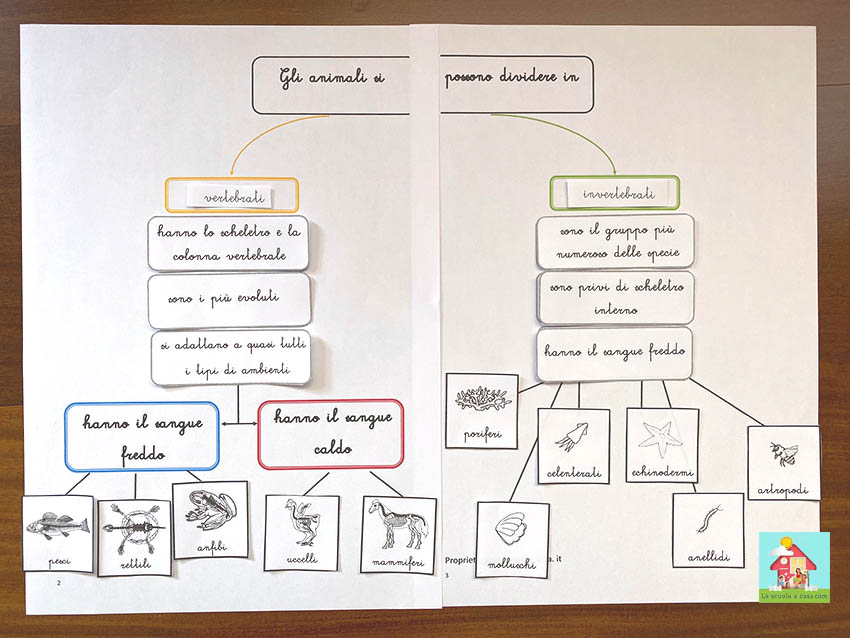 Gli animali si possono dividere in
vertebrati
hanno lo scheletro e la
colonna vertebrale
sono i più evoluti
si adattano a quasi tutti
i tipi di ambienti
hanno il sangue
freddo
hanno il sangue
caldo
pesci
rettili
anfibi
uccelli
mammiferi
2
invertebrati
sono il gruppo più
numeroso delle specie
sono privi di scheletro
interno
hanno il sangue freddo
poriferi
celenterati
echinodermi
artropodi
molluschi
anellidi
Propriet
a. it
3
La scuola a casa.com